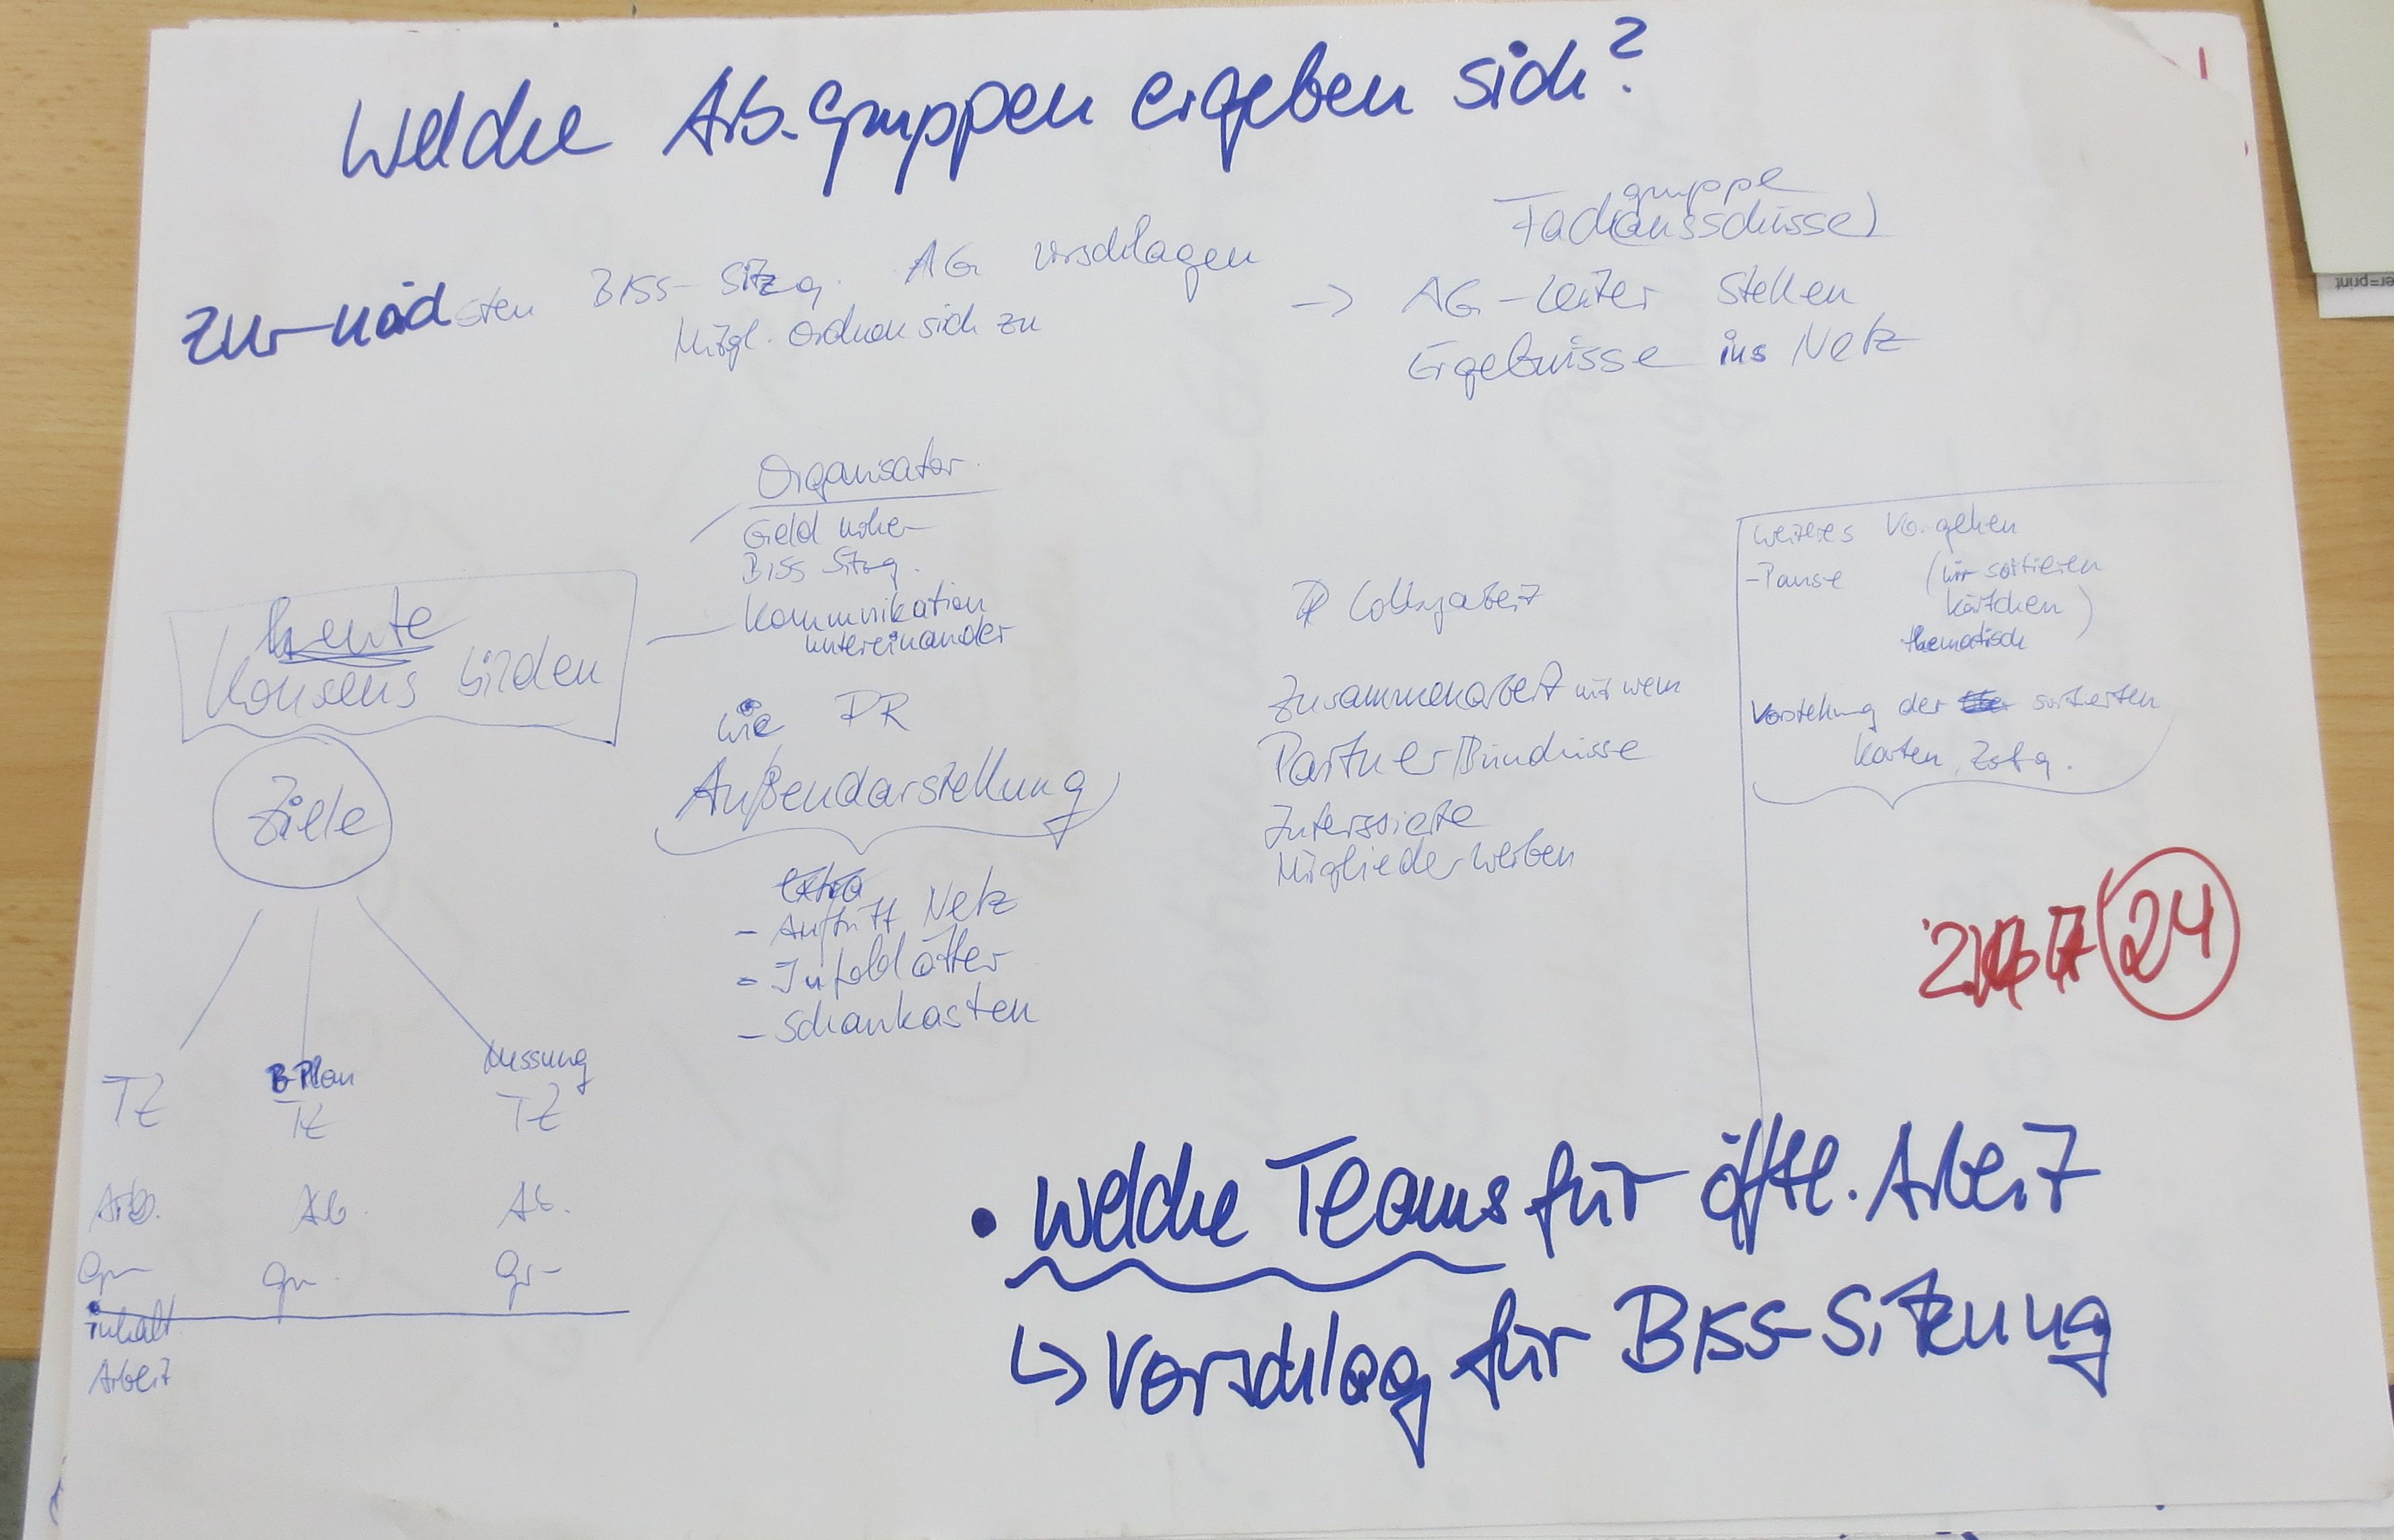 Welche Arb.gruppen ergeben sich?
zur nächsten BISS-Sitzg. AG vorschlagen
Mitgl. ordnen sich zu
gruppe
Fach(ausschüsse)
-> AG-Leiter stellen
Ergebnisse ins Netz
Organisator.
Geld
BISS Sitzg.
Kommunikation
untereinander
heute
Konsens bilden
Ziele
wie PR
Außendarstellung
extra
- Auftritt Netz
- Infoblätter
- Schaukasten
TZ B-Plan TZ TZ
Arb. Ab. Ab.
gr gr. gr-
inhalt.
Arbeit
Lobbyarbeit
Zusammenarbeit mit wem
Partner/Bündnisse
Interssierte
Mitglieder werben
weiteres Vorgehen
-Pause (wir sortieren
Kärtchen)
thematisch
Vorstellung der sortierten
Karten
24
• Welche Teams für öfftl. Arbeit
↳ Vorschlag für BISS-Sitzung